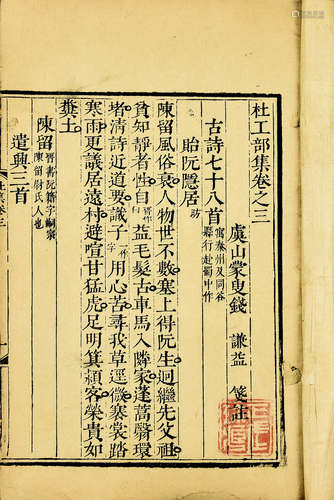 杜工部集卷之三
虞山蒙叟錢 謙益 箋註
古詩七十八首 寓秦州及同谷縣行赴蜀中作
貽阮隱居 昉
陳留風俗衰人物世不數塞上得阮生迥繼先父祖
貧知靜者性 自 益毛髮古車馬入隣家蓬蒿翳環
堵清詩近道要識子 一作字 用心苦尋我草逕微褰裳踏
寒雨更議居遠村避喧甘猛虎足明箕潁客榮貴如
糞土
陳留 晉書阮籍字嗣宗陳留尉氏人也
遣興三首